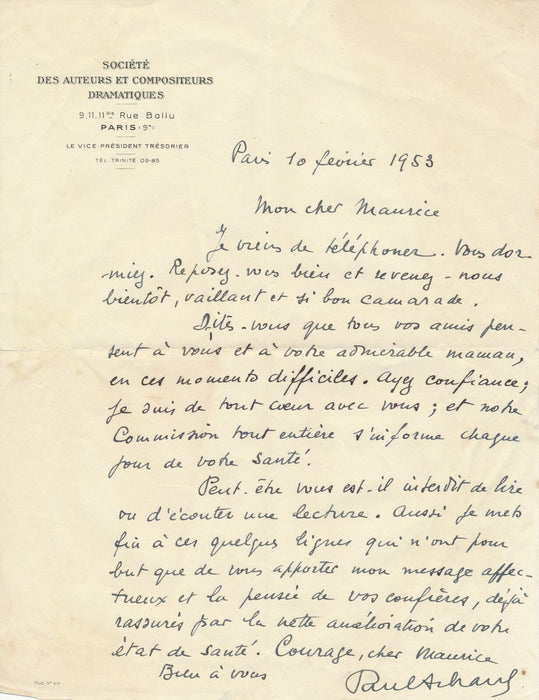 SOCIÉTÉ
DES AUTEURS ET COMPOSITEURS
DRAMATIQUES
9.11.11bis Rue Ballu
PARIS (9e)
LE VICE-PRÉSIDENT TRÉSORIER
TÉL. TRINITÉ 09-85
Paris 10 février 1953
Mon cher Maurice
Je viens de téléphoner. Vous dor-
miez. Reposez-vous bien et revenez-nous
bientôt, vaillant et si bon camarade.
Dites-vous que tous vos amis pen-
sent à vous et à votre admirable maman,
en ces moments difficiles. Ayez confiance;
je suis de tout cœur avec vous; et notre
Commission tout entière s'informe chaque
jour de votre santé.
Peut-être vous est-il interdit de lire
ou d'écouter une lecture. Aussi je mets
fin à ces quelques lignes qui n'ont pour
but que de vous apporter mon message affec-
tueux et la pensée de vos confrères, déjà
rassurés par la nette amélioration de votre
état de santé. Courage, cher Maurice
Bien à vous
Paul Achard